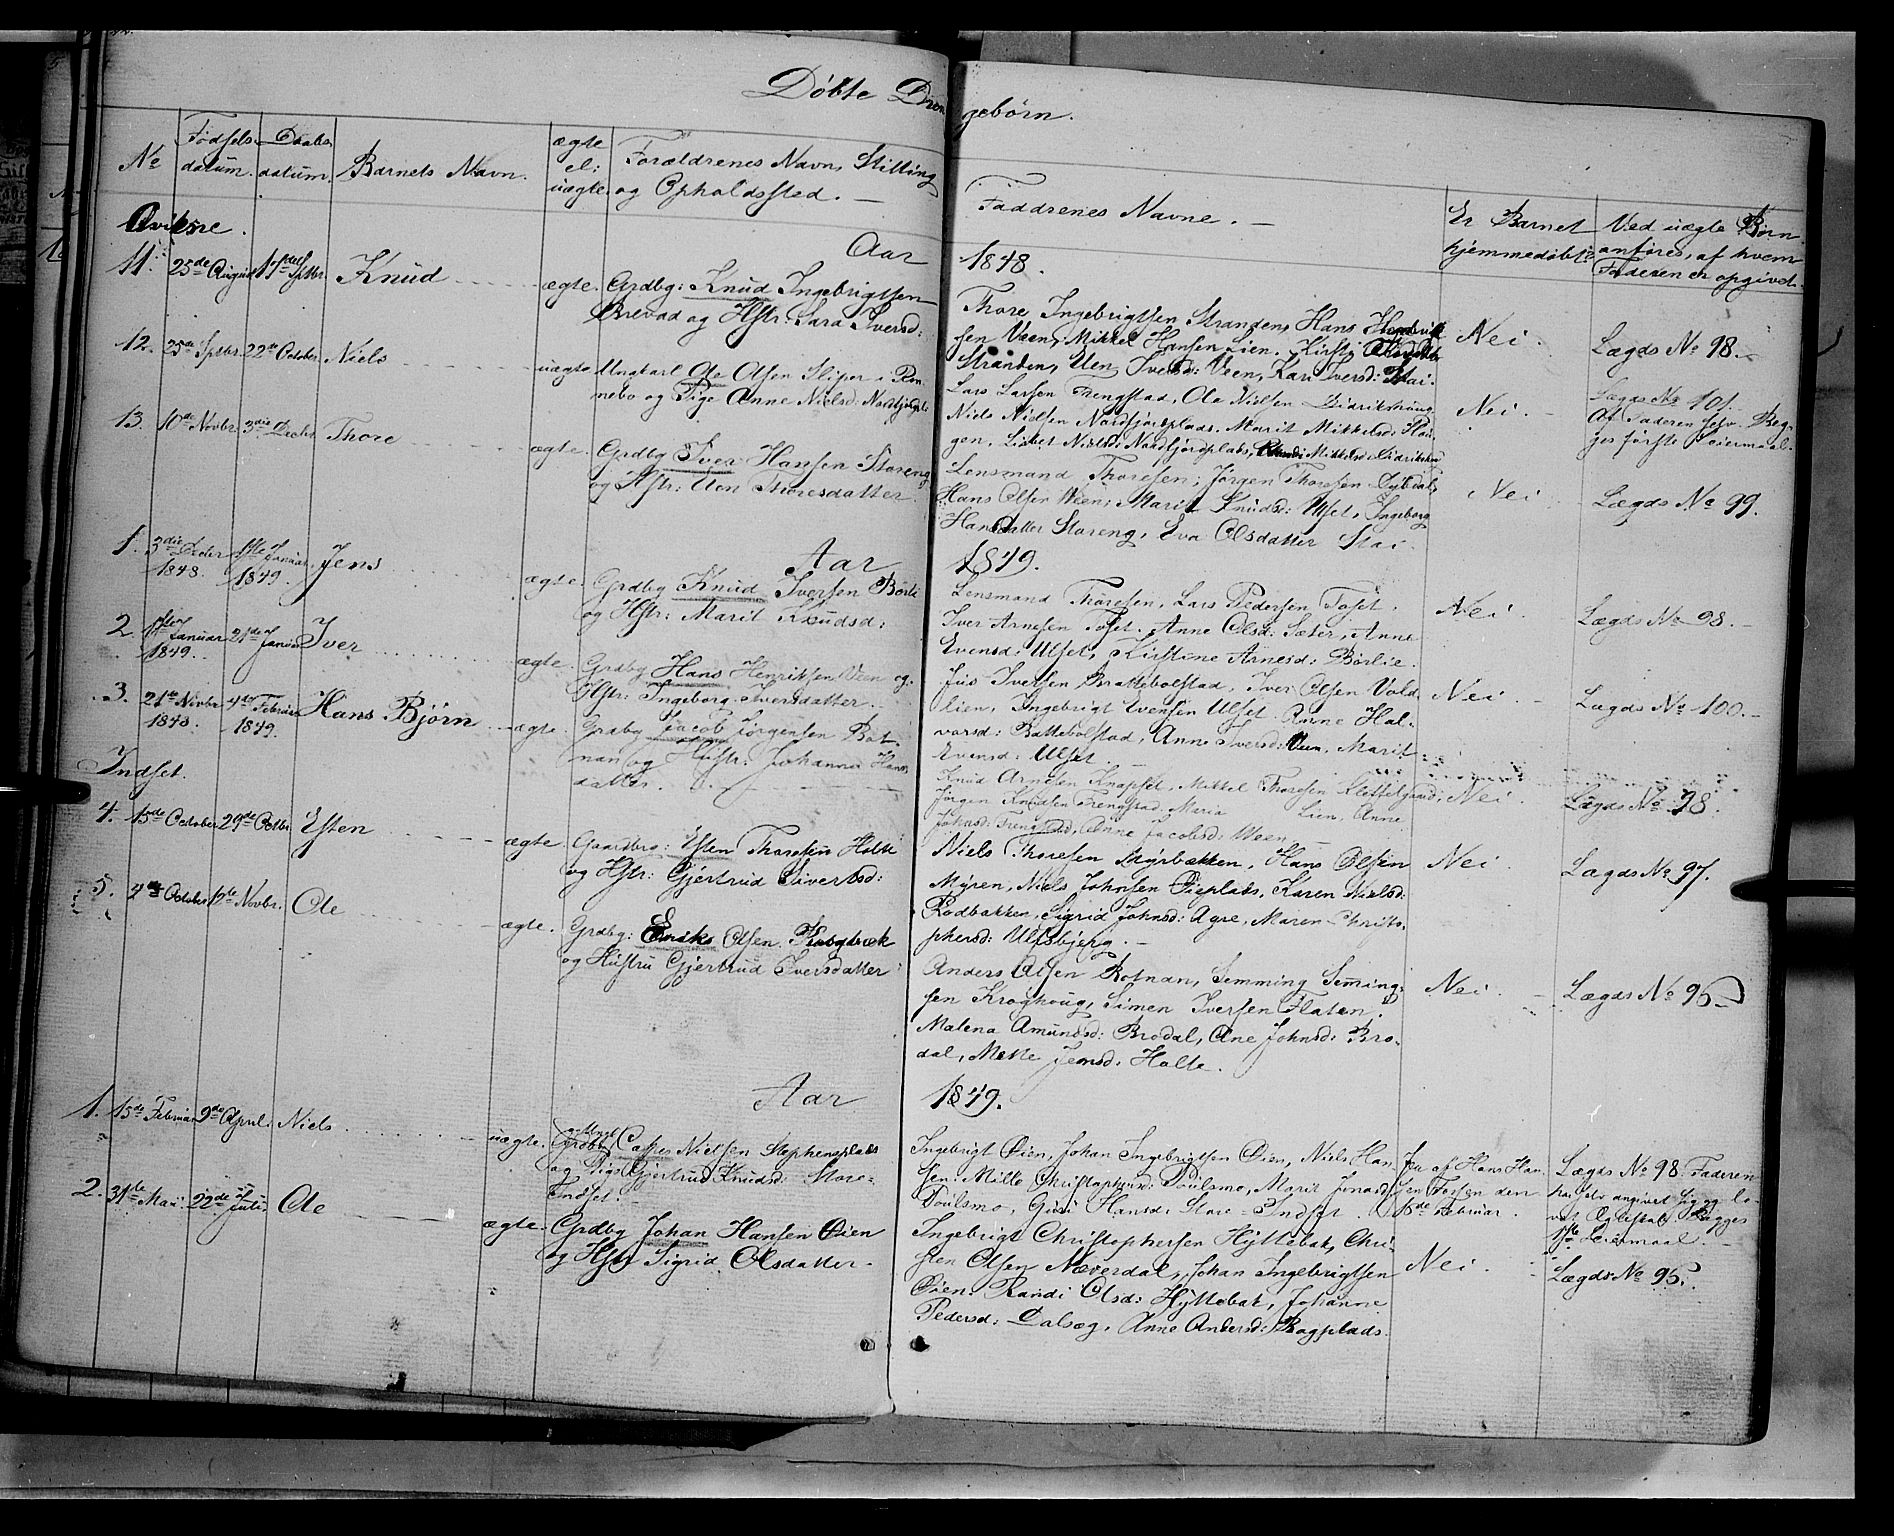 Døbte Drengebørn.
No
Fødsels datum.
Daabs datum.
Barnets Navn.
ægte el: uægte.
Forældrenes Navn, Stilling og Opholdssted. —
Faddrenes Navne. —
Er Barnet hjemmedøbt?
Ved uægte Børn anføres, af hvem Faderen er opgivet.
Qvikne.
Aar 1848.
11. 25de August 17de Septbr. Knud
ægte. Grdbg: Knud Ingebrigtsen
Brevad og Hstr: Sara Iversd:
Thore Ingebrigtsen Stranden, Hans
sen Veen, Mikkel Hansen Lien. Kirsti
Stranden, Uen Iversd: Veen, Kari Iversd: Stai.
Nei.
Lægds No 98.
12. 25de Septbr. 22de October Niels
uægte Ungkarl Ole Olsen Sliper i Ren-
nebo og Pige Anne Nielsd:
Lars Larsen Frengstad, Ole Nielsen Lidrikshaug
Niels Nielsen Nordfjordplads, Marit Mikkelsd: Hau-
gen, Lisbet Nielsd: Nordfjordplads, Mikkelsd: Lidrikshaug
Nei.
Lægds No 101.
Af Faderen selv. Beg-
ges første Leiermaal.
13. 10de Novbr. 3die Decbr. Thore
ægte. Grdbg Iver Hansen Storeng
og Hstr: Uen Thoresdatter.
Lensmand Thoresen, Jörgen Thoresen Dybdal,
Hans Olsen Veen, Marit Knudsd: Ulset, Ingeborg
Hansdatter Storeng, Eva Olsdatter Stai.
Nei
Lægds No 99.
Aar 1849.
1. 3die Decbr 1848. 1ste Januar 1849. Jens
ægte. Grdbg Knud Iversen Børli
og Hstr: Marit Knudsd:
Lensmand Thoresen, Lars Pedersen Toset.
Iver Arnesen Toset. Anne Olsd: Sæter, Anne
Evensd: Ulset, Kirstine Arnesd: Børlie.
Nei.
Lægds No 98.
2. 1ste Januar 1849. 21de Januar Iver
ægte. Grdbg Hans Henriksen Veen og
Hstr: Ingeborg Iversdatter.
Jus Iversen Brattebolstad, Iver Olsen Vold-
lien, Ingebrigt Evensen Ulset. Anne Hal-
vorsd: Battebolstad, Anne Iversd: Veen, Marit
Evensd: Ulset.
Nei.
Lægds No 100.
3. 21de Novbr 1848. 4de Februar 1849. Hans Bjørn
ægte. Grdbg Jacob Jørgensen Bot-
nan og Hustr: Johanna Hans-
datter.
Knud Arnesen Knapset, Mikkel Thoresen Slettelgjerd,
Jörgen Knudsen Frengstad, Maria Lien, Anne
Johnsd: Frengstad, Anne Jacobsd: Veen
Nei.
Lægds No 98.
Indset.
4. 15de October 29de Octbr. Esten
ægte. Gaardbrg: Esten Thoresen Holte
og Hstr: Gjertrud Siversd:
Niels Thoresen Myrbakken, Hans Olsen
Myren, Niels Johnsen Øieplads, Karen Nielsd:
Rodbakken, Sigrid Johnsd: Agre, Maren Christo-
phersd: Ulvsbjerg.
Nei.
Lægds No 97.
5. 4de October 12te Novbr. Ole
ægte. Grdbg: Eriks Olsen
og Hustru Gjertrud Iversdatter
Anders Olsen Botnan, Semming Seming-
sen Kroghoug, Simen Iversen Flaten.
Malena Amundsd: Brodal, Ane Johnsd: Bro-
dal, Mette Jensd: Holte.
Nei.
Lægds No 96.
Aar 1849.
1. 15de Februar 9de April. Niels
uægte. Casper Nielsen Stephensplads
og Pige Gjertrud Knudsd: Store-
Indset.
Ingebrigt Øien, Johan Ingebrigtsen Øien, Niels Han-
sen. Mille Christophersd: Poulsmo, Marit Jonasd:
Poulsmo, Guri Hansd: Store-Indset.
Jea af Hans Han-
sen Tossen den
16de Februar.
Lægds No 98. Faderen
har selv angivet sig og lo-
vet Ægteskab. Begges
1ste Leiermaal.
2. 31te Mai 22de Juli. Ole
ægte. Grdbg Johan Hansen Øien
og Hstr: Sigrid Olsdatter.
Ingebrigt Christophersen Hyttebak, Chri-
sten Olsen Næverdal, Johan Ingebrigtsen
Øien. Randi Olsd: Hyttebak, Johanne
Pedersd: Dalsæg, Anne Andersd: Bagplads.
Nei.
Lægds No 95.